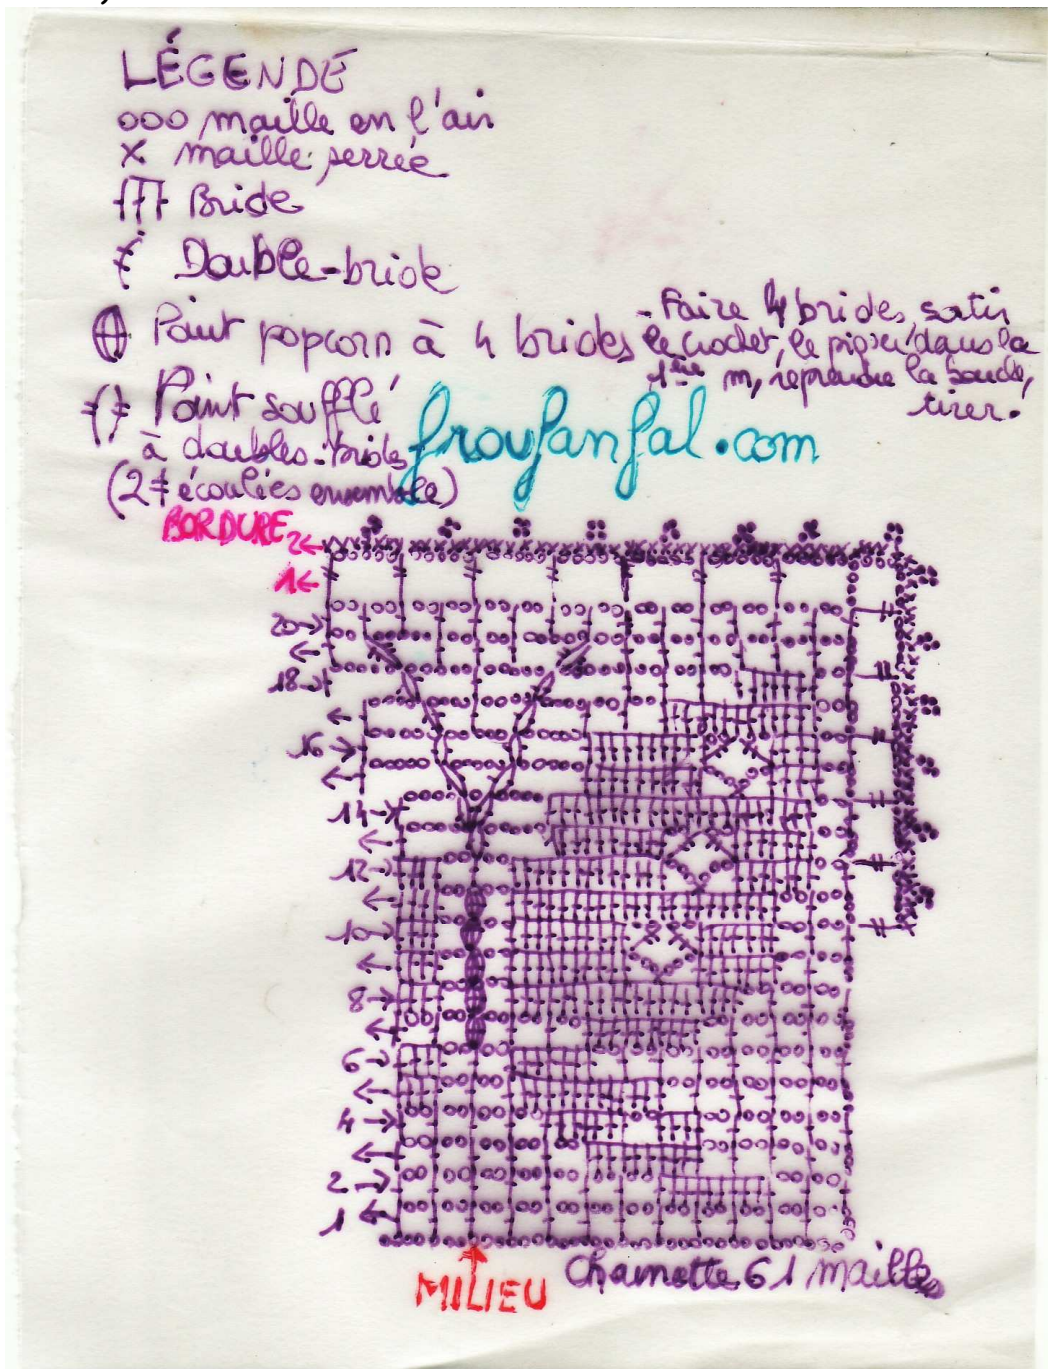 LÉGENDE
ooo maille en l'air
x maille serrée
Bride
Double-bride
Point popcorn à 4 brides
- Faire 4 brides, sortir
le crochet, le piquer dans la
1ère m, reprendre la boucle,
tirer.
Point soufflé
à doubles-brides
(2 écoulées ensemble)
froufanfal.com
BORDURE 2
1
20
18
16
14
12
10
8
6
4
2
1
MILIEU
Chainette 61 mailles